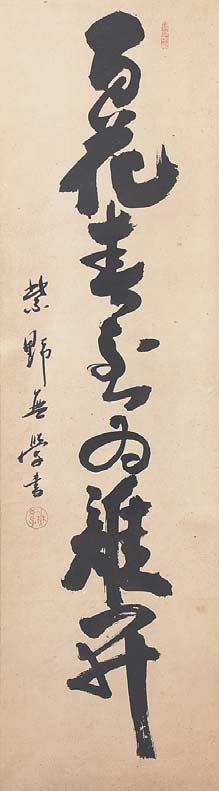 百花春至為誰開
紫野無学書